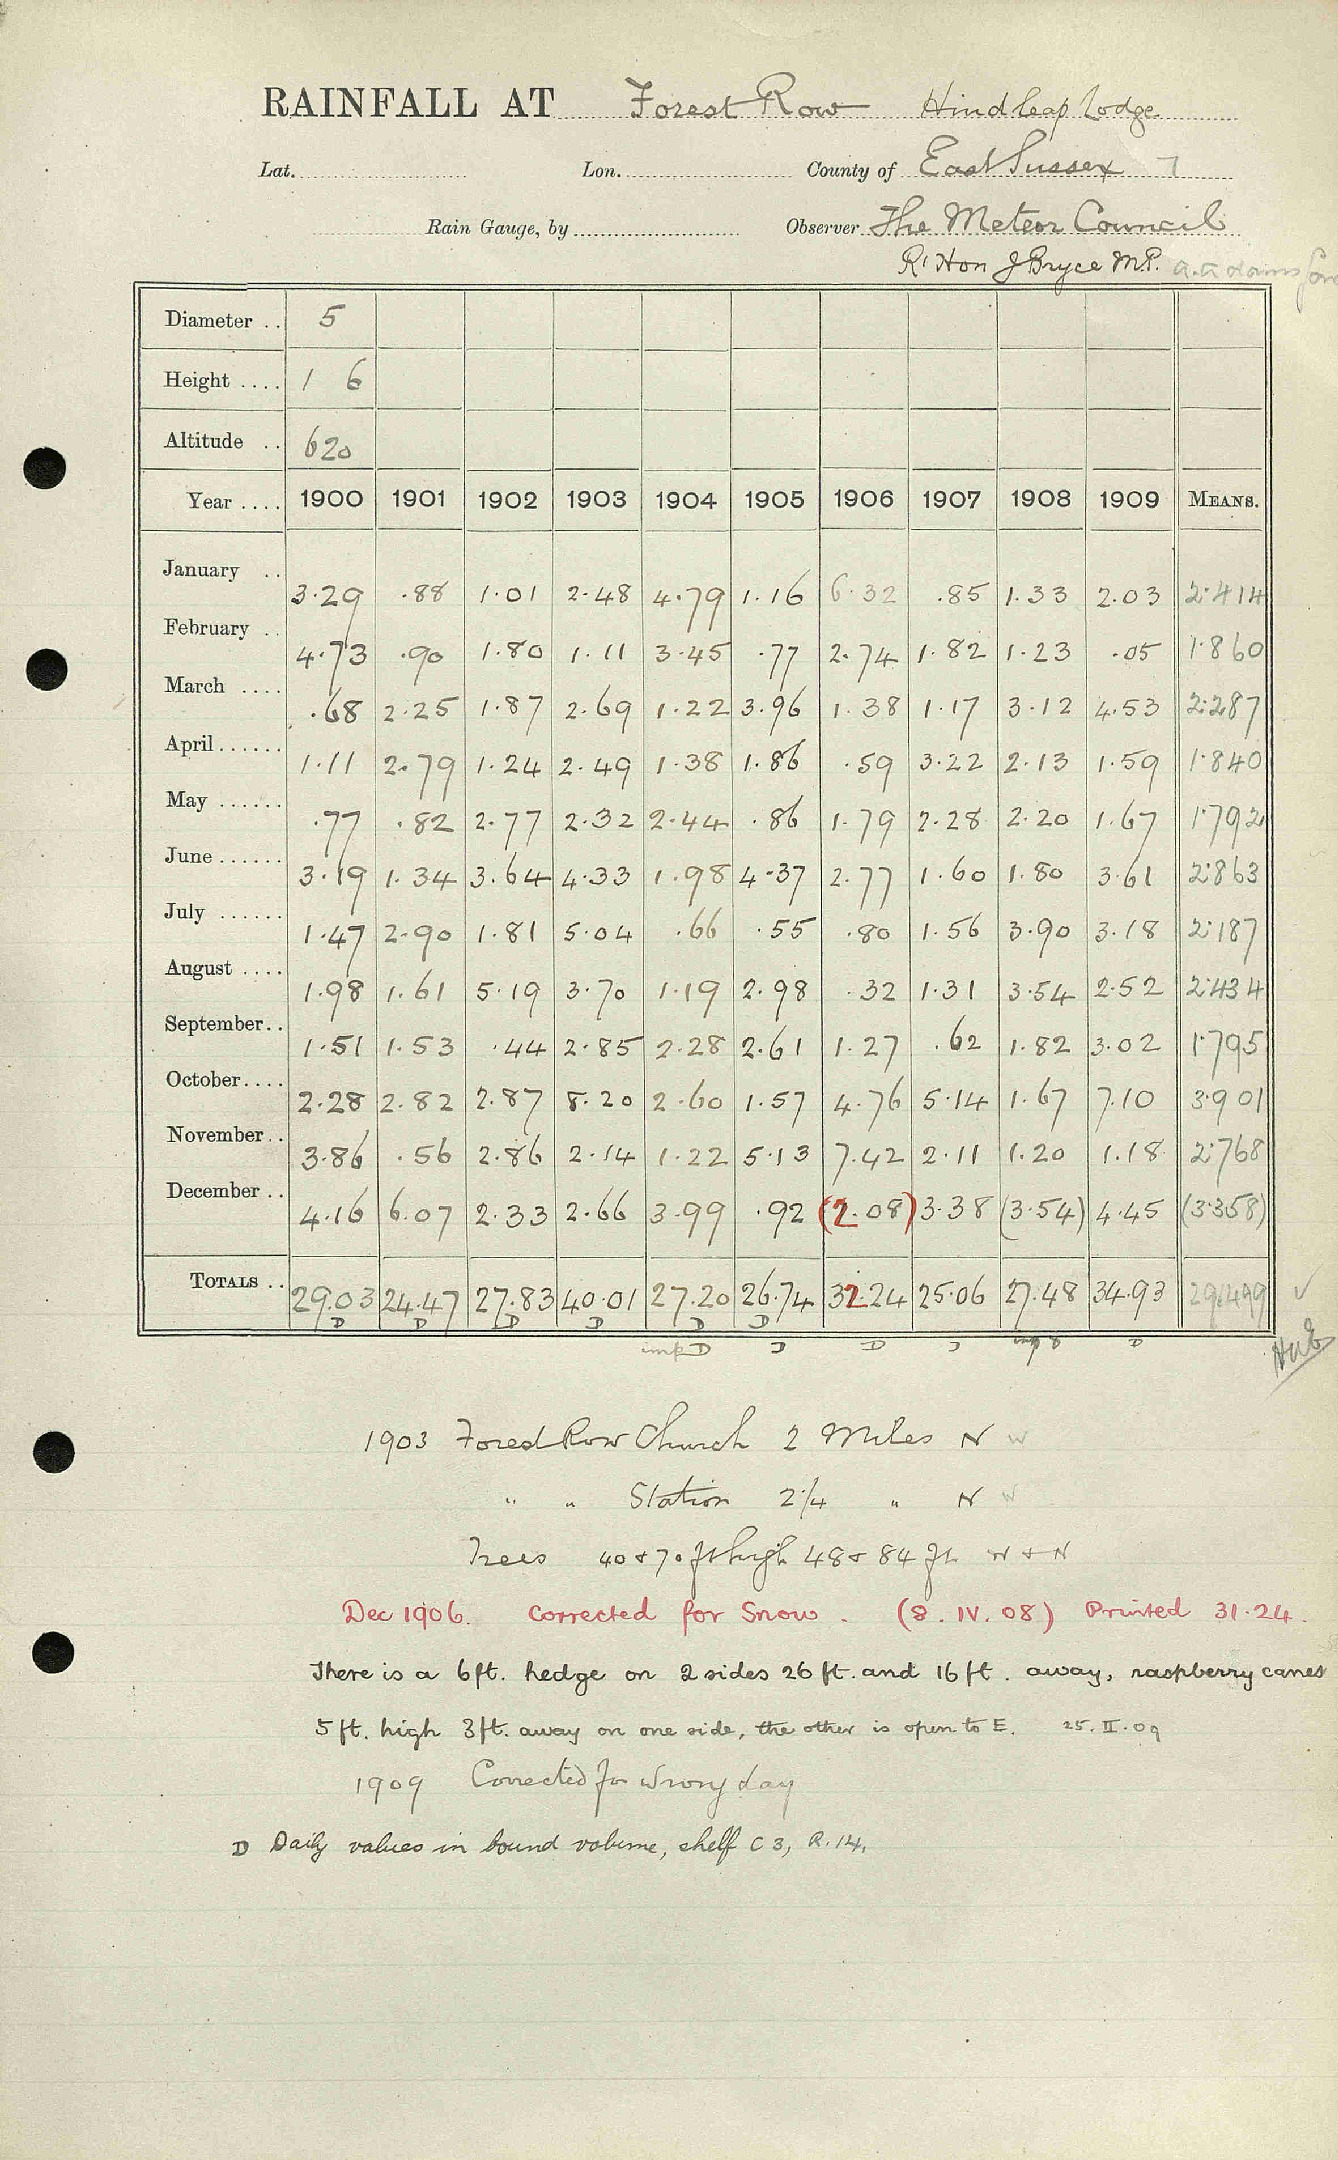 RAINFALL AT Forest Row Hindleap Lodge
Lat. Lon. County of East Sussex 7
Rain Gauge, by Observer The Meteor Council
Rt Hon J Bryce M.P.
Diameter .. 5
Height .... 1 6
Altitude .. 620
Year .... 1900 1901 1902 1903 1904 1905 1906 1907 1908 1909 MEANS.
January .. 3.29 .88 1.01 2.48 4.79 1.16 6.32 .85 1.33 2.03 2.414
February .. 4.73 .90 1.80 1.11 3.45 .77 2.74 1.82 1.23 .05 1.860
March .... .68 2.25 1.87 2.69 1.22 3.96 1.38 1.17 3.12 4.53 2.287
April ...... 1.11 2.79 1.24 2.49 1.38 1.86 .59 3.22 2.13 1.59 1.840
May ...... .77 .82 2.77 2.32 2.44 .86 1.79 2.28 2.20 1.67 1.792
June ...... 3.19 1.34 3.64 4.33 1.98 4.37 2.77 1.60 1.80 3.61 2.863
July ...... 1.47 2.90 1.81 5.04 .66 .55 .80 1.56 3.90 3.18 2.187
August .... 1.98 1.61 5.19 3.70 1.19 2.98 .32 1.31 3.54 2.52 2.434
September .. 1.51 1.53 .44 2.85 2.28 2.61 1.27 .62 1.82 3.02 1.795
October .... 2.28 2.82 2.87 8.20 2.60 1.57 4.76 5.14 1.67 7.10 3.901
November .. 3.86 .56 2.86 2.14 1.22 5.13 7.42 2.11 1.20 1.18 2.768
December .. 4.16 6.07 2.33 2.66 3.99 .92 (2.08) 3.38 (3.54) 4.45 (3.358)
TOTALS .. 29.03 24.47 27.83 40.01 27.20 26.74 32.24 25.06 27.48 34.93 29.499
D D D D D D
imp D D D D D
1903 Forest Row Church 2 Miles N W
" " Station 2 1/4 " N W
Trees 40 & 70 ft high 48 & 84 ft W & N
Dec 1906. Corrected for Snow. (8.IV.08) Printed 31.24.
There is a 6ft. hedge on 2 sides 26 ft. and 16 ft. away, raspberry canes
5 ft. high 3ft. away on one side, the other is open to E. 25.II.09
1909 Corrected for wrong day
D Daily values in bound volume, shelf C 3, R.14.